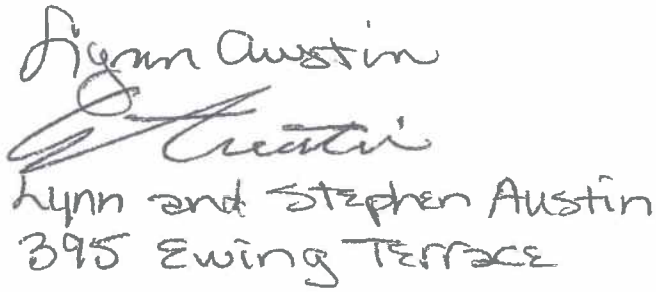 Lynn Austin
Austin
Lynn and Stephen Austin
395 Ewing Terrace